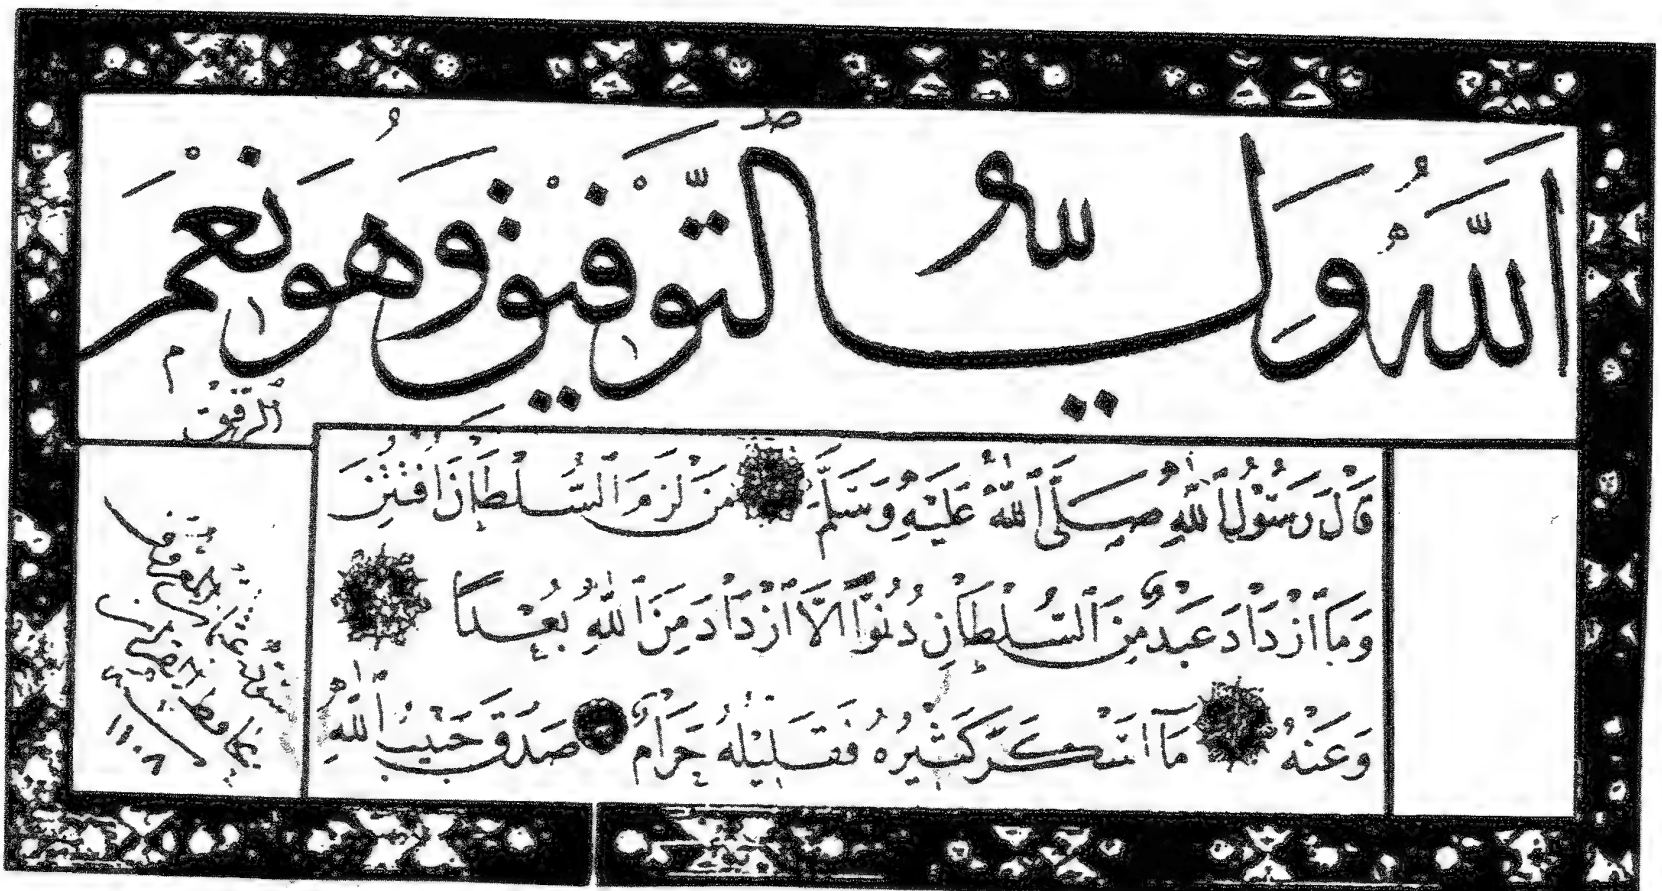 الله ولي التوفيق وهو نعم
الرفيق
قال رسول الله صلى الله عليه وسلم من لزم السلطان افتتن
وما ازداد عبد من السلطان دنوا الا ازداد من الله بعدا
وعنه ما اسكر كثيره فقليله حرام صدق حبيب الله
سوده عثمان
المعروف
بحافظ القرآن
١١٠٨